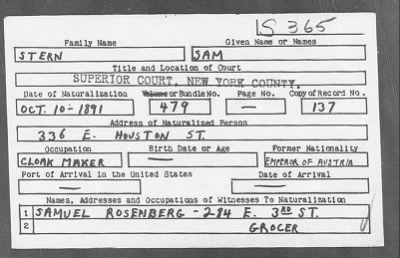 S 365
Family Name Given Name or Names
STERN SAM
Title and Location of Court
SUPERIOR COURT, NEW YORK COUNTY.
Date of Naturalization Volume or Bundle No. Page No. Copy of Record No.
OCT. 10-1891 479 — 137
Address of Naturalized Person
336 E. HOUSTON ST.
Occupation Birth Date or Age Former Nationality
CLOAK MAKER — EMPEROR OF AUSTRIA
Port of Arrival in the United States Date of Arrival
— —
Names, Addresses and Occupations of Witnesses To Naturalization
1 SAMUEL ROSENBERG - 284 E. 3RD ST.
2 GROCER